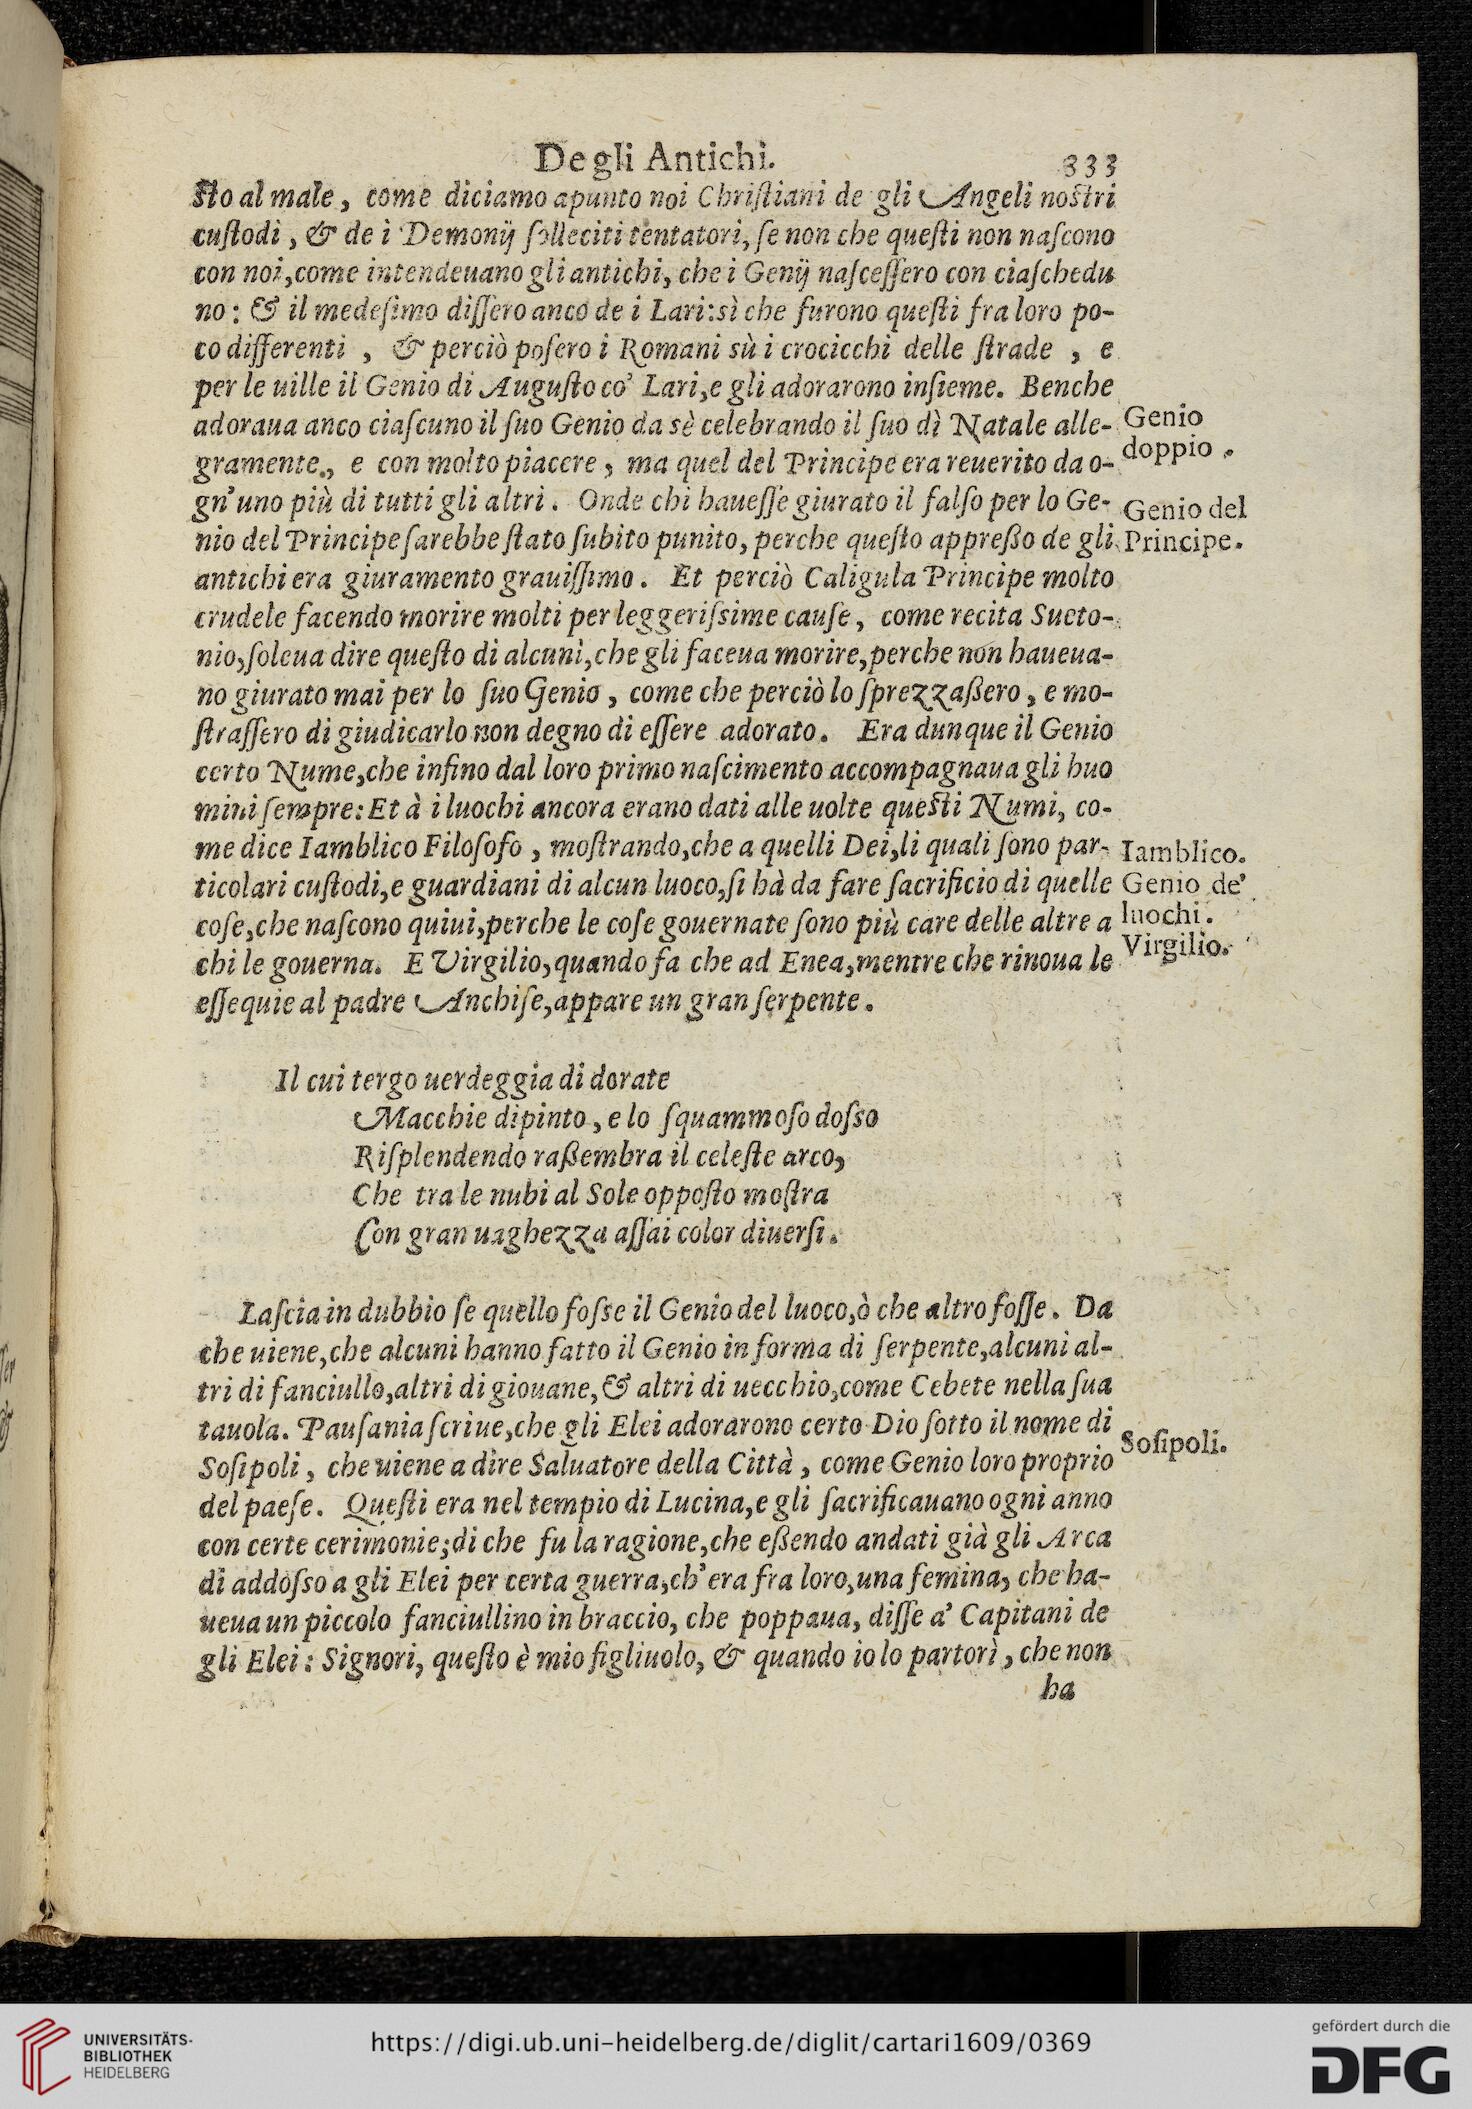 De gli Antichi. 333
ſto al male, come diciamo apunto noi Chriſtiani de gli Angeli noſtri
cuſtodi, & de i Demonij ſolleciti tentatori, ſe non che queſti non naſcono
con noi, come intendeuano gli antichi, che i Genij naſceſſero con ciaſchedu
no: & il medeſimo diſſero anco de i Lari: sì che furono queſti fra loro po-
co differenti, & perciò poſero i Romani sù i crocicchi delle ſtrade, e
per le uille il Genio di Auguſto co' Lari, e gli adorarono inſieme. Benche
adoraua anco ciaſcuno il ſuo Genio da sè celebrando il ſuo dì Natale alle-
Genio
doppio.
gramente, e con molto piacere, ma quel del Principe era reuerito da o-
gn'uno più di tutti gli altri. Onde chi haueſſe giurato il falſo per lo Ge-
Genio del
Principe.
nio del Principe ſarebbe ſtato ſubito punito, perche queſto appreßo de gli
antichi era giuramento grauiſſimo. Et perciò Caligula Principe molto
crudele facendo morire molti per leggeriſsime cauſe, come recita Sueto-
nio, ſoleua dire queſto di alcuni, che gli faceua morire, perche non haueua-
no giurato mai per lo ſuo Genio, come che perciò lo ſprezzaßero, e mo-
ſtraſſero di giudicarlo non degno di eſſere adorato. Era dunque il Genio
certo Nume, che infino dal loro primo naſcimento accompagnaua gli huo
mini ſempre: Et à i luochi ancora erano dati alle uolte queſti Numi, co-
me dice Iamblico Filoſofo, moſtrando, che a quelli Dei, li quali ſono par-
Iamblico.
ticolari cuſtodi, e guardiani di alcun luoco, ſi hà da fare ſacrificio di quelle
Genio de'
luochi.
coſe, che naſcono quiui, perche le coſe gouernate ſono più care delle altre a
chi le gouerna. E Virgilio, quando fa che ad Enea, mentre che rinoua le
Virgilio.
eſſequie al padre Anchiſe, appare un gran ſerpente.
Il cui tergo uerdeggia di dorate
Macchie dipinto, e lo ſquammoſo doſso
Riſplendendo raßembra il celeſte arco,
Che tra le nubi al Sole oppoſto moſtra
Con gran uaghezza aſſai color diuerſi.
Laſcia in dubbio ſe quello foſse il Genio del luoco, ò che altro foſſe. Da
che uiene, che alcuni hanno fatto il Genio in forma di ſerpente, alcuni al-
tri di fanciullo, altri di giouane, & altri di uecchio, come Cebete nella ſua
tauola. Pauſania ſcriue, che gli Elei adorarono certo Dio ſotto il nome di
Soſipoli.
Soſipoli, che uiene a dire Saluatore della Città, come Genio loro proprio
del paeſe. Queſti era nel tempio di Lucina, e gli ſacrificauano ogni anno
con certe cerimonie; di che fu la ragione, che eßendo andati già gli Arca
di addoſso a gli Elei per certa guerra, ch'era fra loro, una femina, che ha-
ueua un piccolo fanciullino in braccio, che poppaua, diſſe a' Capitani de
gli Elei: Signori, queſto è mio figliuolo, & quando io lo partorì, che non
ha
UNIVERSITÄTS-
BIBLIOTHEK
HEIDELBERG
https://digi.ub.uni-heidelberg.de/diglit/cartari1609/0369
gefördert durch die
DFG